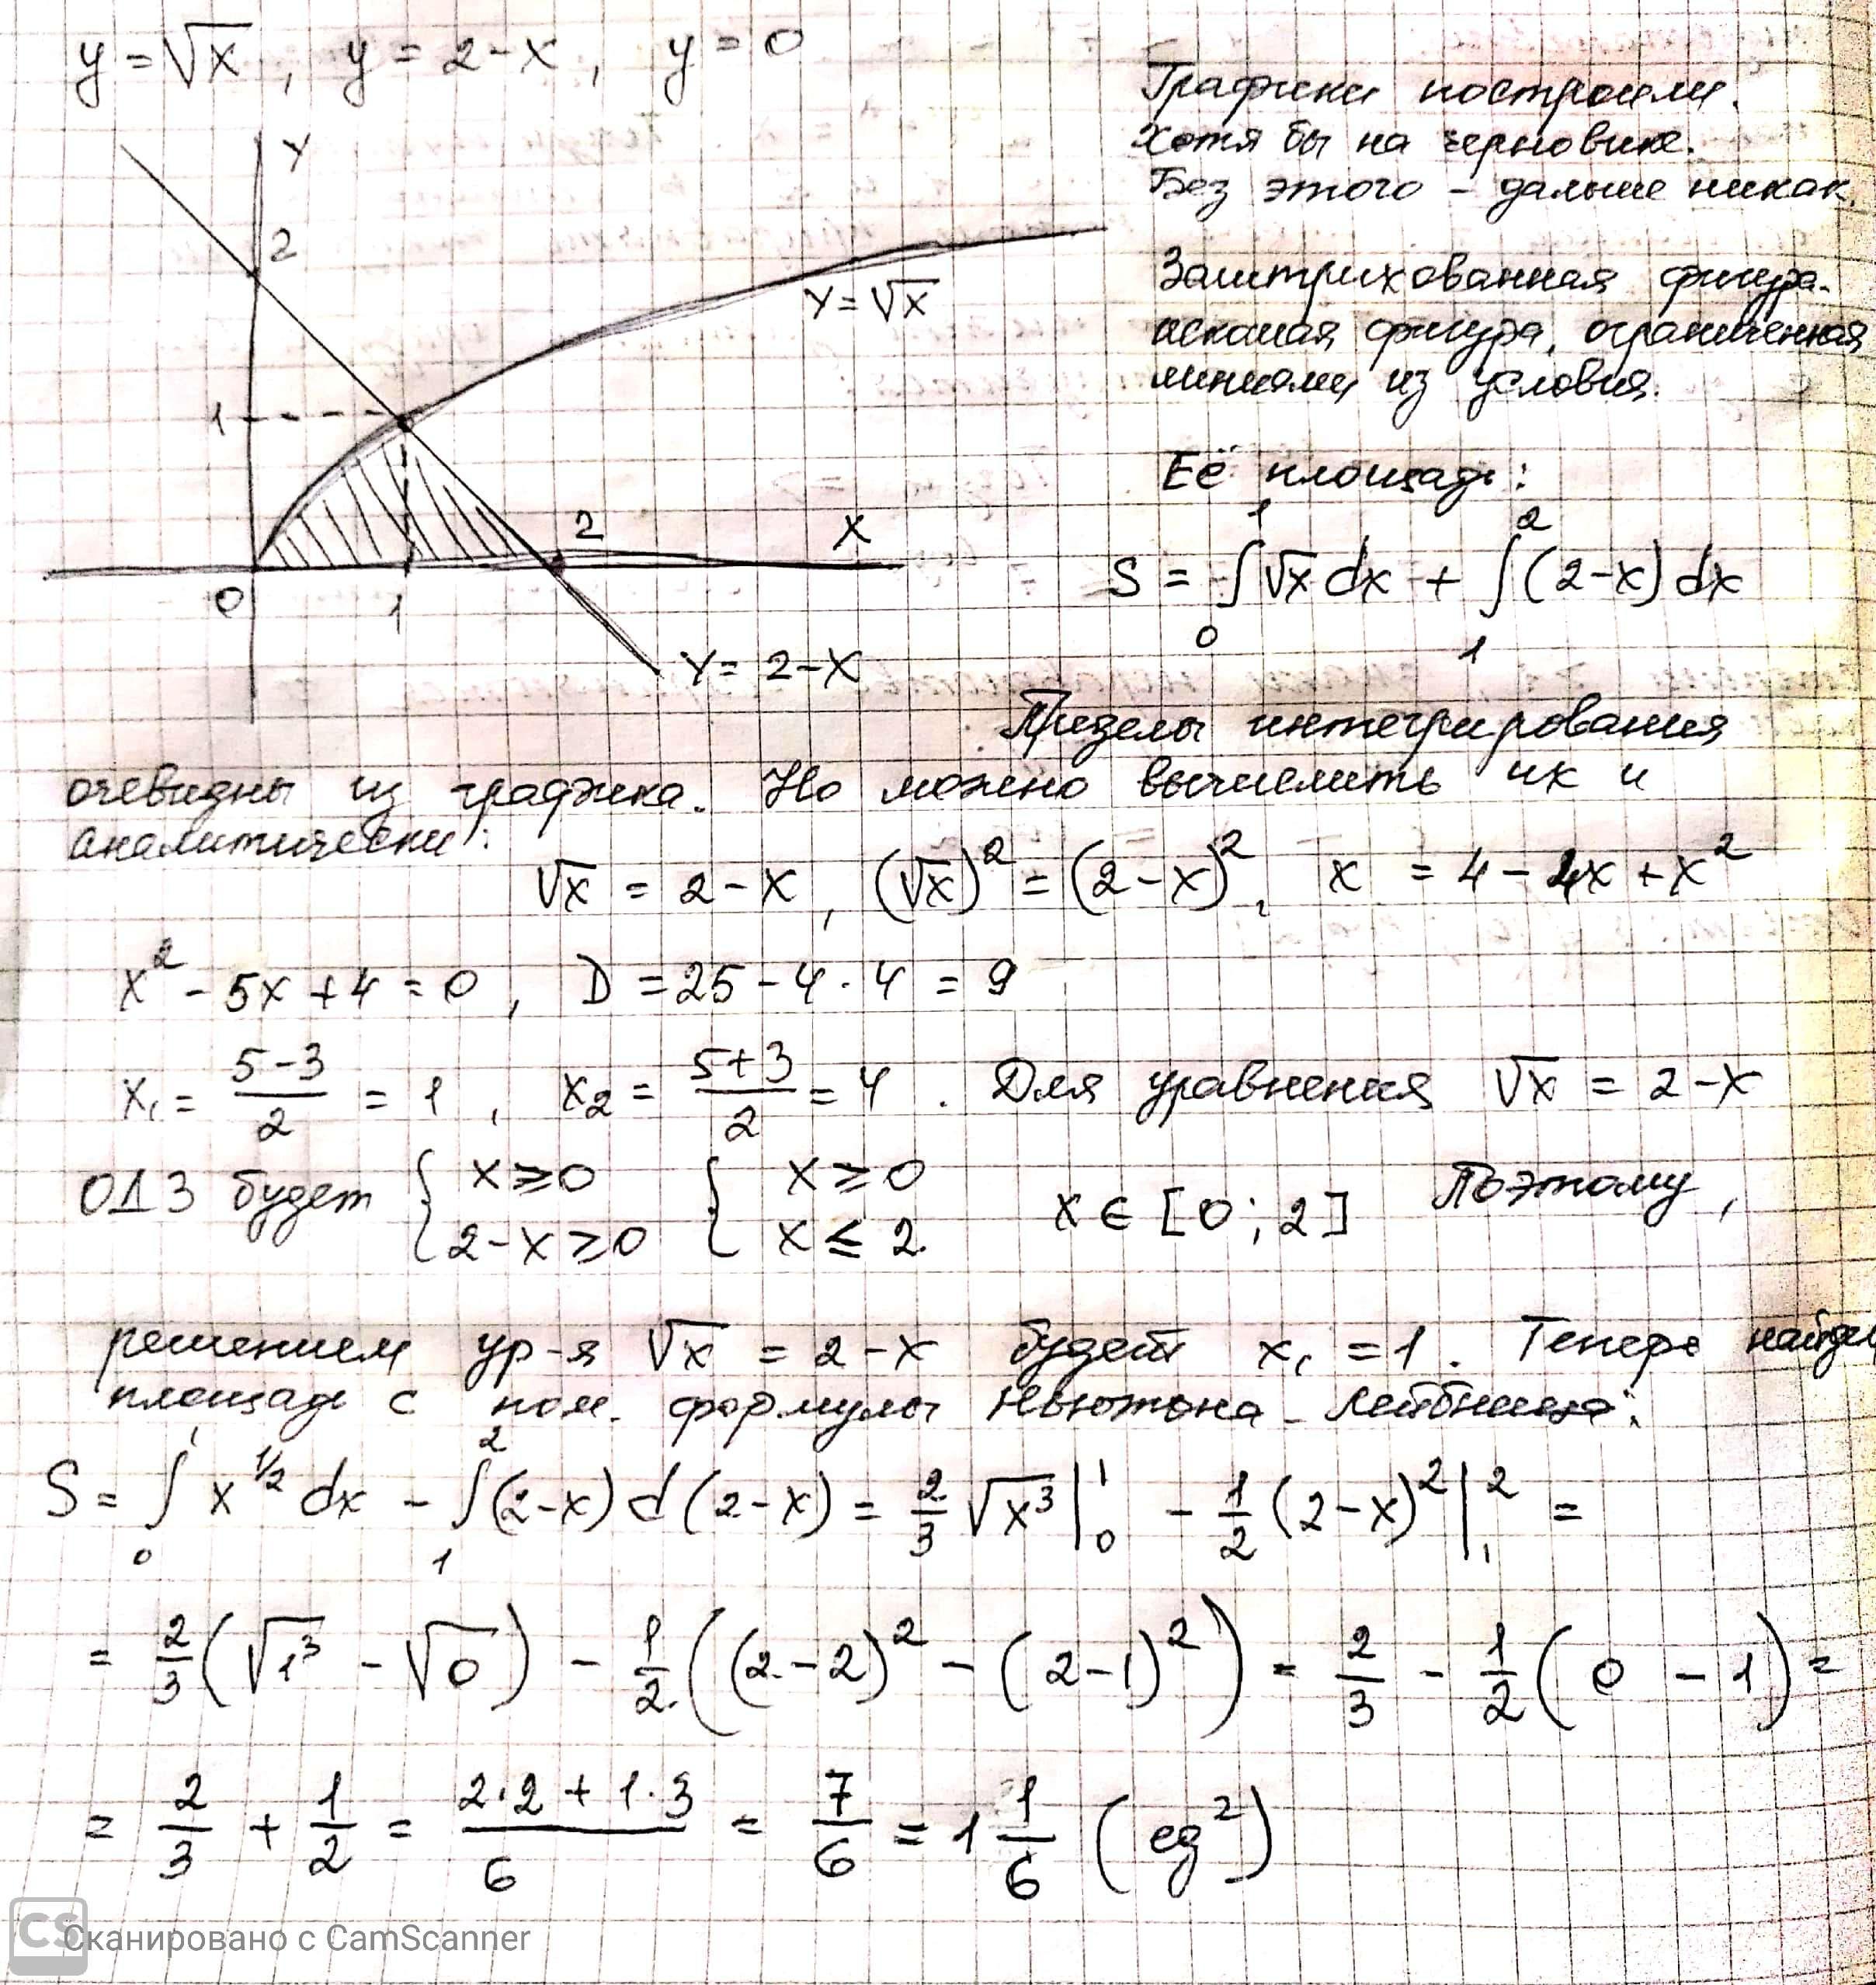 y = √x , y = 2-x , y = 0
Графики построили.
Хотя бы на черновике.
Без этого - дальше никак.
Заштрихованная фигура-
искомая фигура, ограниченная
линиями из условия.
Её площадь:
S = ∫₀¹ √x dx + ∫₁² (2-x) dx
Y
2
Y = √x
1
2
X
0
1
Y = 2-X
Пределы интегрирования
очевидны из графика. Но можно вычислить их и
аналитически:
√x = 2-x , (√x)² = (2-x)², x = 4-4x+x²
x² - 5x + 4 = 0 , D = 25 - 4·4 = 9
x₁ = (5-3)/2 = 1 , x₂ = (5+3)/2 = 4 . Для уравнения √x = 2-x
ОДЗ будет { x ≥ 0 { x ≥ 0 x ∈ [0; 2] Поэтому,
2-x ≥ 0 x ≤ 2
решением ур-я √x = 2-x будет x₁ = 1. Теперь найдем
площадь с пом. формулы Ньютона-Лейбница:
S = ∫₀¹ x^½ dx - ∫₁² (2-x) d(2-x) = 2/3 √x³ |₀¹ - 1/2 (2-x)² |₁² =
= 2/3 (√1³ - √0) - 1/2 ((2-2)² - (2-1)²) = 2/3 - 1/2 (0 - 1) =
= 2/3 + 1/2 = (2·2 + 1·3)/6 = 7/6 = 1 1/6 (ед²)
CS Сканировано с CamScanner